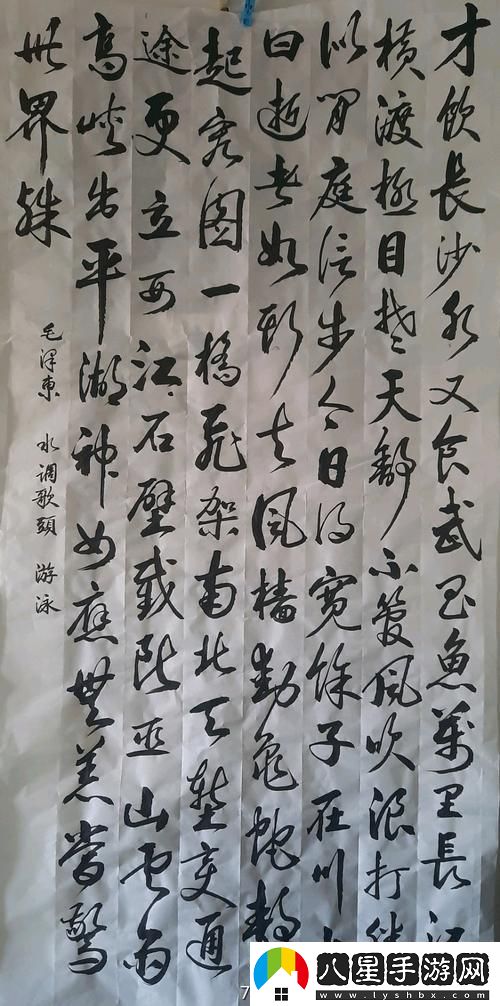 才飲長沙水又食武昌魚萬里長江
橫渡極目楚天舒不管風吹浪打勝
似閒庭信步今日得寬餘子在川上
曰逝者如斯夫風檣動龜蛇靜
起宏图一橋飛架南北天塹變通
途更立西江石壁截断巫山雲雨
高峽出平湖神女應無恙當驚
世界殊
毛澤東 水调歌頭 游泳
7
八星手游网
www.lyshbx.com